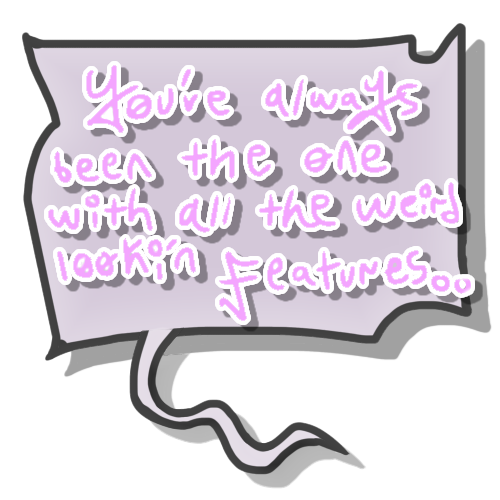 You're always
been the one
with all the weird
lookin' features..